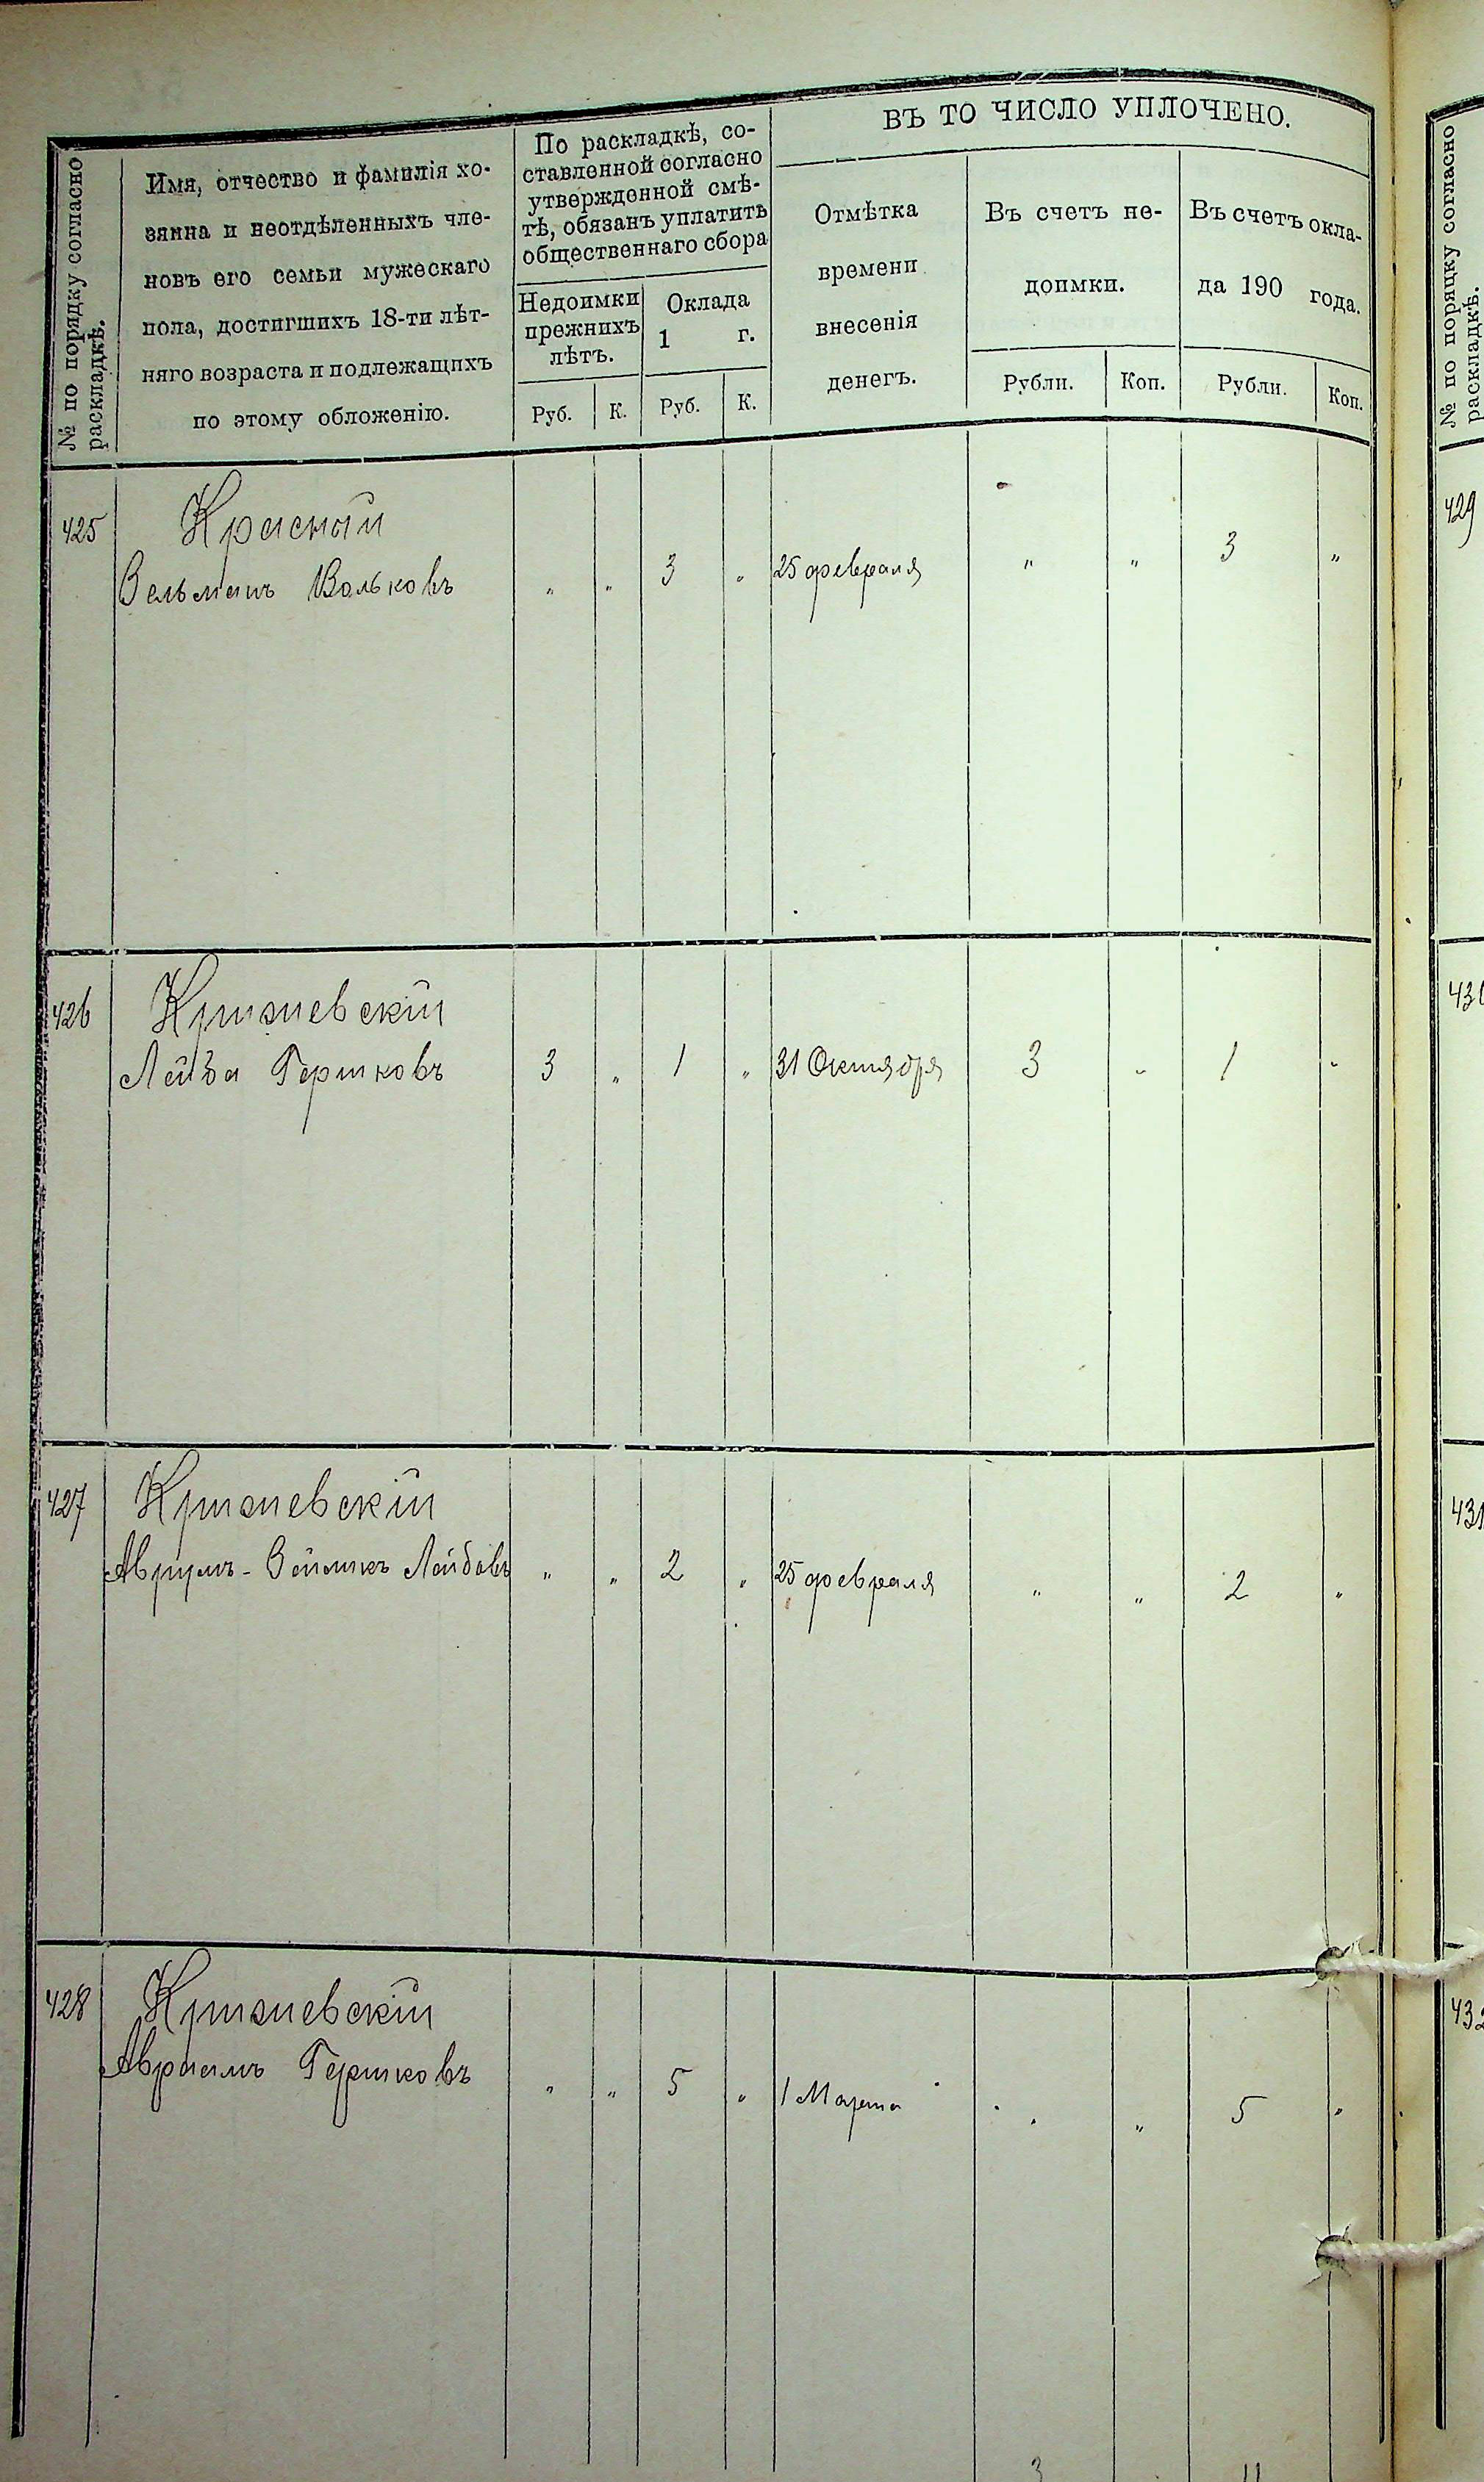 ВЪ ТО ЧИСЛО УПЛОЧЕНО.
№ по порядку согласно
раскладкѣ.
Имя, отчество и фамилія хо-
зяина и неотдѣленныхъ чле-
новъ его семьи мужескаго
пола, достигшихъ 18-ти лѣт-
няго возраста и подлежащихъ
по этому обложенію.
По раскладкѣ, со-
ставленной согласно
утвержденной смѣ-
тѣ, обязанъ уплатить
общественнаго сбора
Недоимки
прежнихъ
лѣтъ.
Оклада
1 г.
Руб. К. Руб. К.
Отмѣтка
времени
внесенія
денегъ.
Въ счетъ не-
доимки.
Рубли. Коп.
Въ счетъ окла-
да 190 года.
Рубли. Коп.
425 Красный
Зельманъ Вольковъ " " 3 " 25 февраля " " 3 "
426 Кржиевскій
Лейба Гершковъ 3 " 1 " 31 Октября 3 " 1 "
427 Кржиевскій
Аврумъ-Зейликъ Лейбовъ " " 2 " 25 февраля " " 2 "
428 Кржиевскій
Авраамъ Гершковъ " " 5 " 1 Марта " " 5 "
3 11
№ по порядку согласно
раскладкѣ.
429
431